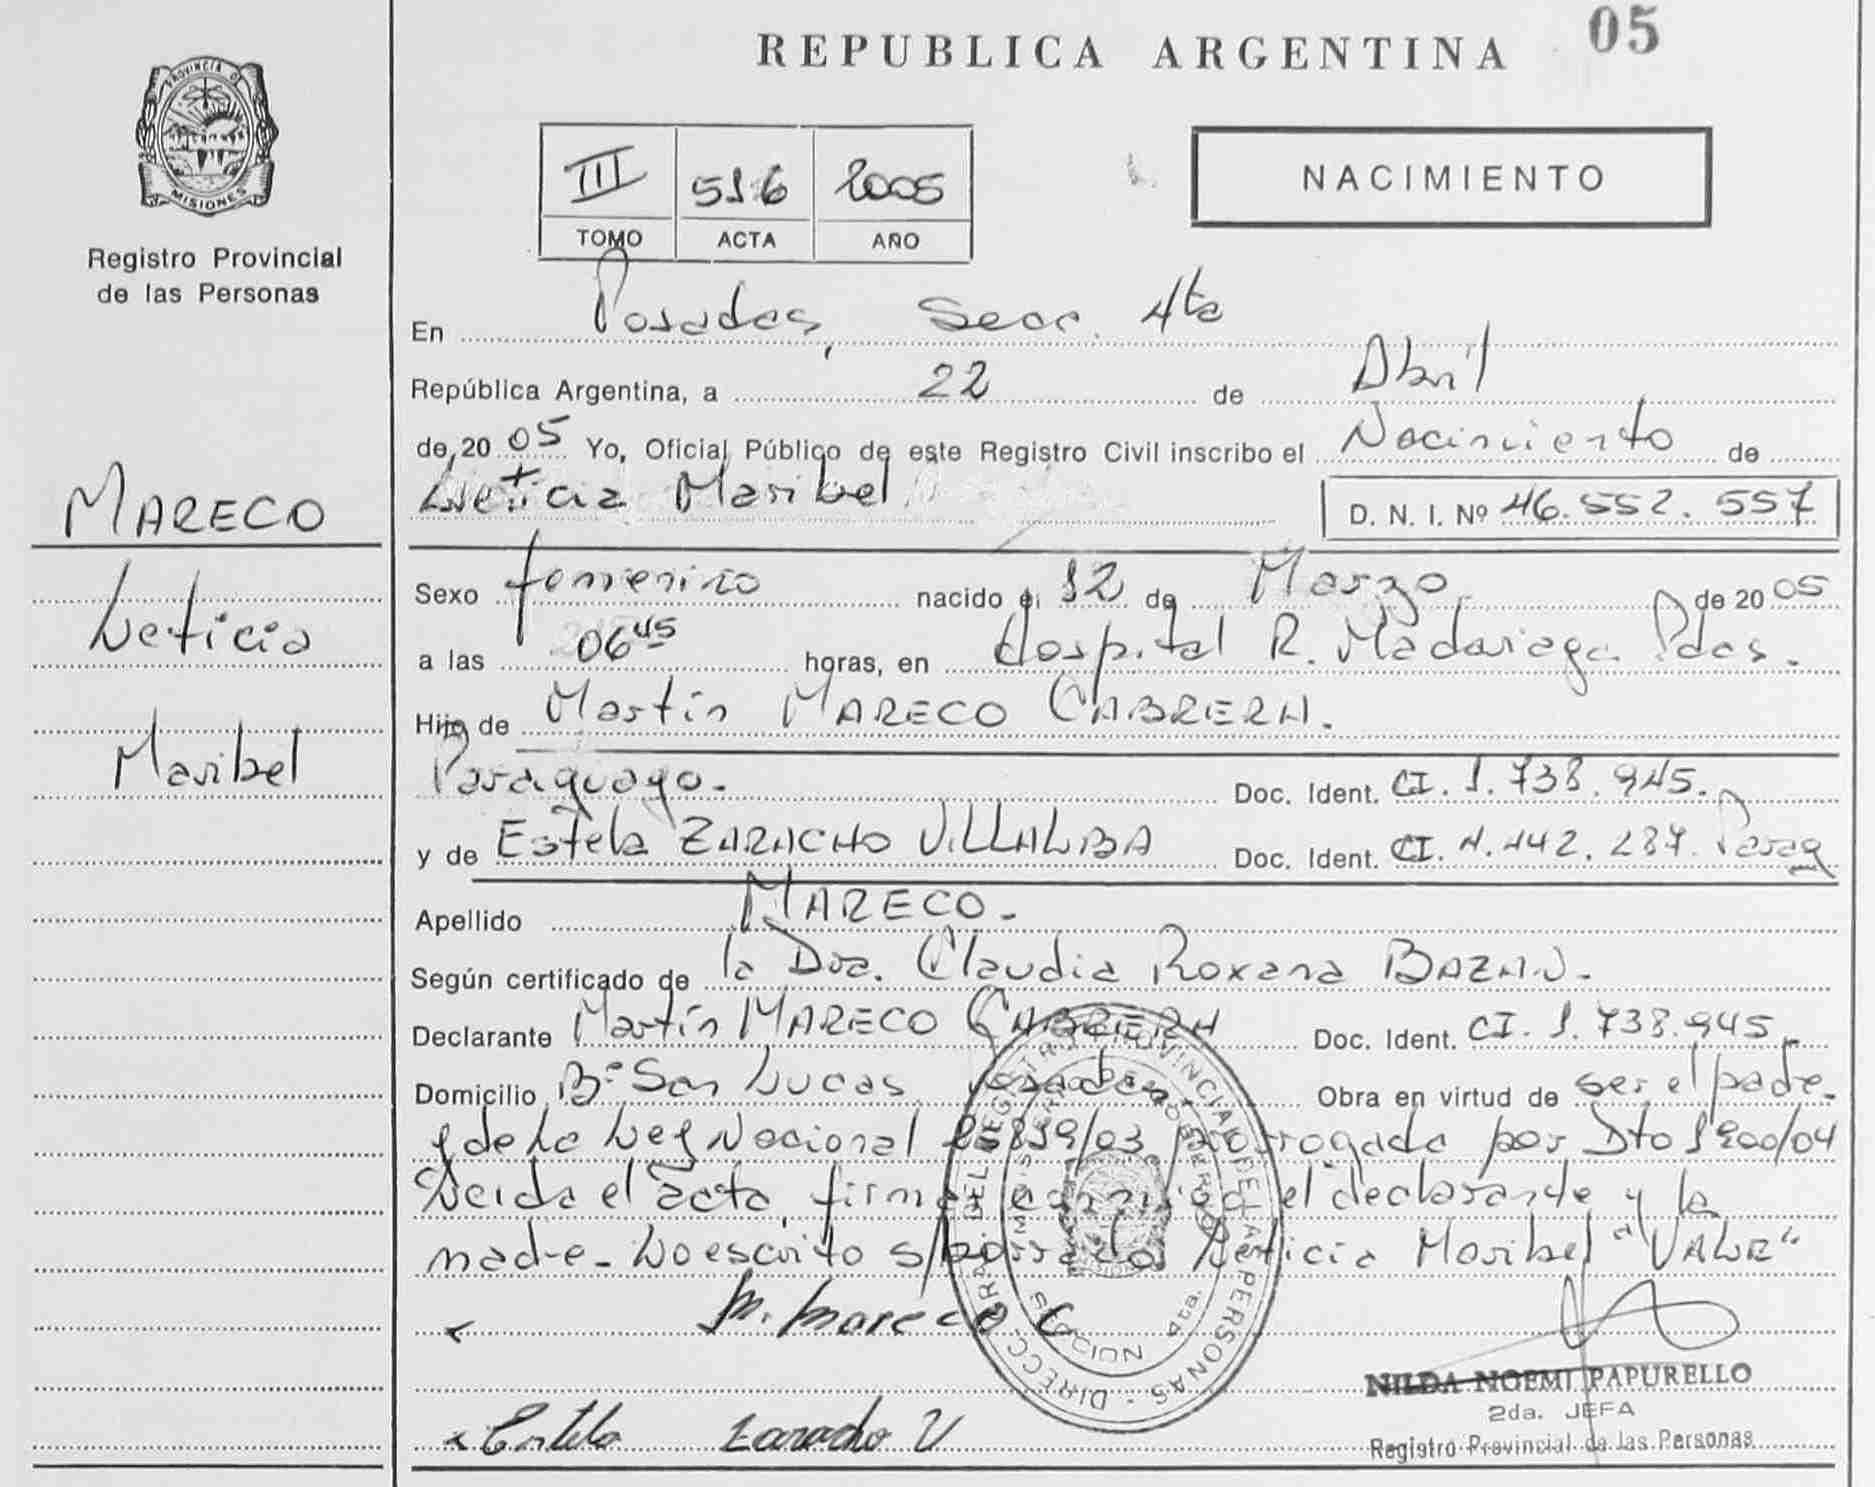 REPUBLICA ARGENTINA 05
PROVINCIA D MISIONES
Registro Provincial
de las Personas
III 516 2005
TOMO ACTA AÑO
NACIMIENTO
MARECO
Leticia
Maribel
En Posadas, Secc. 4ta
República Argentina, a 22 de Abril
de 20 05 Yo, Oficial Público de este Registro Civil inscribo el Nacimiento de
Leticia Maribel D. N. I. Nº 46.552.557
Sexo femenino nacido el 12 de Marzo de 20 05
a las 06 45 horas, en Hospital R. Madariaga Pdas.
Hijo de Martín MARECO CABRERA.
Paraguayo. Doc. Ident. CI. 1.738.945.
y de Estela ZARACHO VILLALBA Doc. Ident. CI. 4.442.287. Parag
Apellido MARECO.
Según certificado de la Dra. Claudia Roxana BAZAN.
Declarante Martín MARECO CABRERA Doc. Ident. CI. 1.738.945
Domicilio Bº San Lucas Posadas Obra en virtud de ser el padre
y de la Ley Nacional 25819/03 prorrogada por Dto 1900/04
Leida el acta, firma conmigo el declarante y la
madre. Lo escrito s/borrado, Leticia Maribel "VALE"
M. Mareco C
Estela Zaracho V
NILDA NOEMI PAPURELLO
2da. JEFA
Registro Provincial de las Personas
DIRECC. GRAL. DEL REGISTRO PROVINCIAL DE LAS PERSONAS
SECCION 4ta.